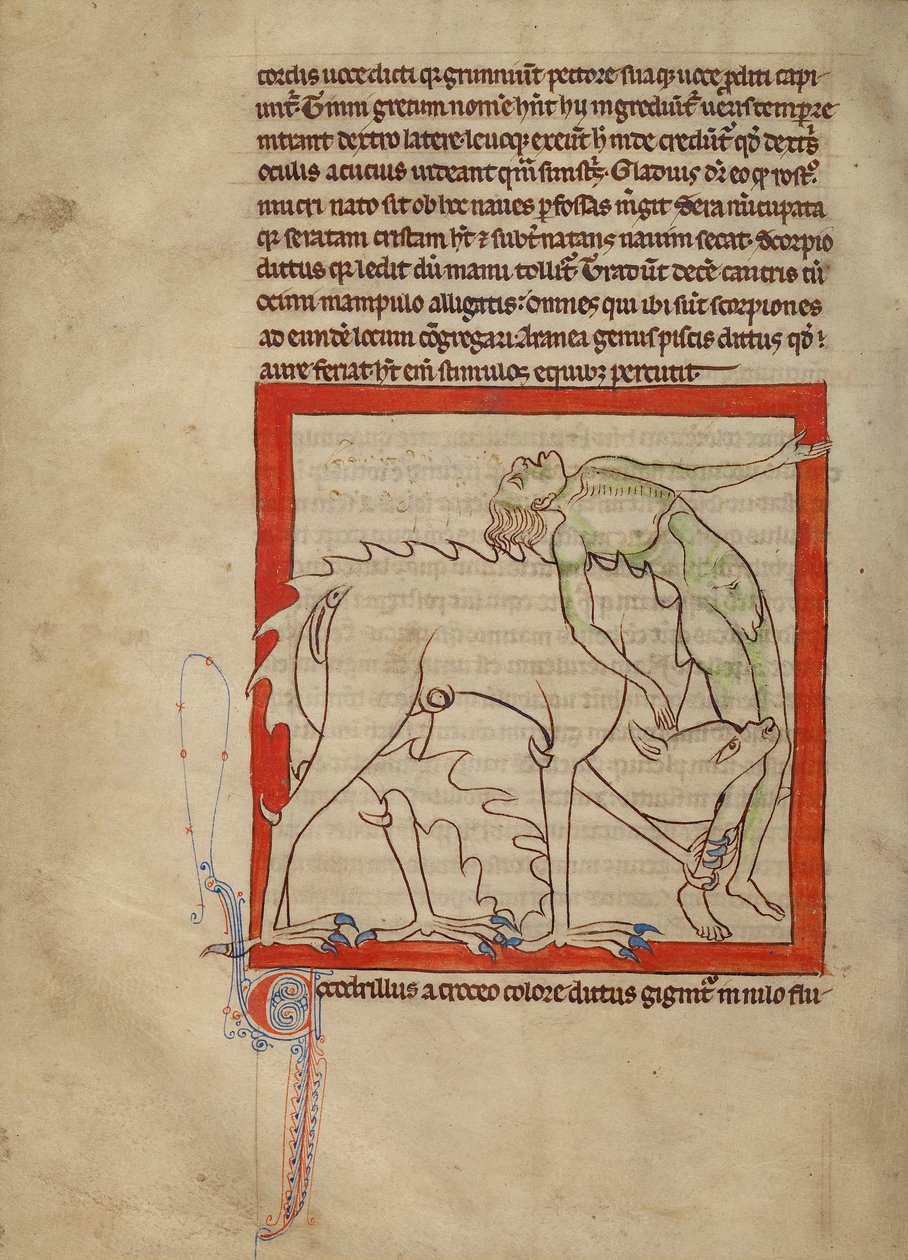 cordis uoce dicti qr grunniunt pectore suaq; uoce proditi capi-
unt̄. Thinni grecum nom̄e hn̄t hij ingrediunt̄ ueris tempore
intrant dextro latere leuoq; exeūt hͦ inde credūt̄ qd̄ dextris
oculis acucius uideant qm̄ sinistris. Gladius dr̄ eo qͥ rostro
mucronato sit ob hoc naues p̱fossas m̄git Serra nūcupata
qr seratam cristam hꝫ ⁊ subt̄natans nauim secat. Scorpio
dictus qr ledit dū manu tollit̄. Tradūt decē cancris cū
ocimi manipulo alligatis: omnes qui ibi sūt scorpiones
ad eundē locum cōgregari. Aranea genus piscis dictus qd̄
aure feriat hꝫ em̄ stimulos equibꝫ percutit.
Cocodrillus a croceo colore dictus gignit̄ in nilo flu-